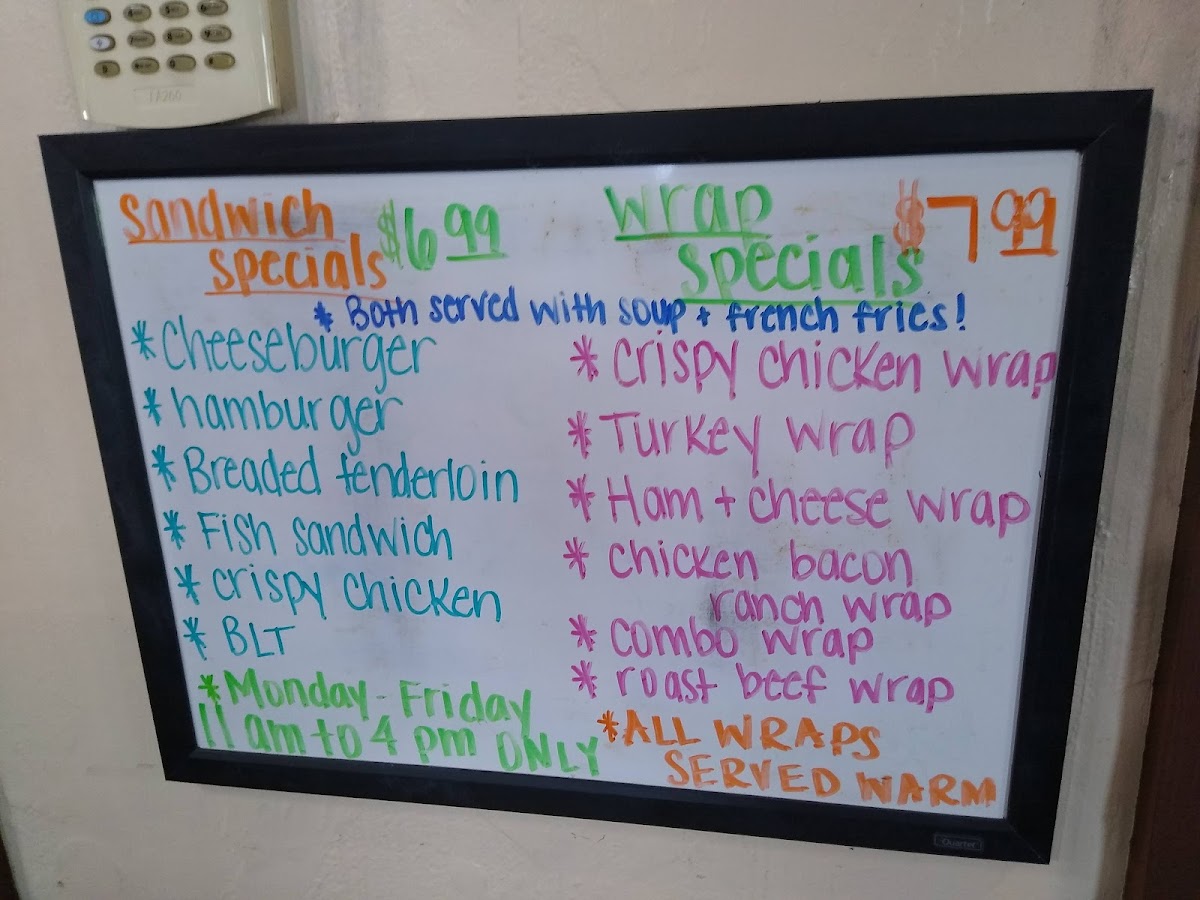 TA260
Sandwich
specials
$6.99
* Both served with soup + french fries!
* Cheeseburger
* hamburger
* Breaded tenderloin
* Fish sandwich
* crispy chicken
* BLT
* Monday - Friday
11 am to 4 pm ONLY
wrap
specials
$7.99
* crispy chicken wrap
* Turkey wrap
* Ham + cheese wrap
* chicken bacon
ranch wrap
* combo wrap
* roast beef wrap
* ALL WRAPS
SERVED WARM
Quartet